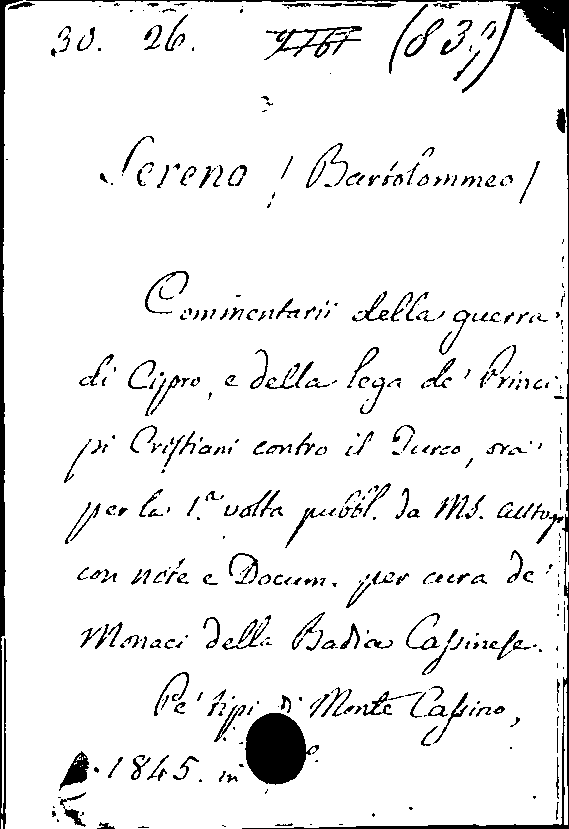 30. 26. (839)
Sereno / Bartolommeo /
Commentarii della guerra
di Cipro, e della lega de' Princi-
pi Cristiani contro il Turco, ora
per la 1.a volta pubbl. da MS. autogr
con note e Docum. per cura de'
Monaci della Badia Cassinese.
Pe' tipi di Monte Cassino,
1845. in